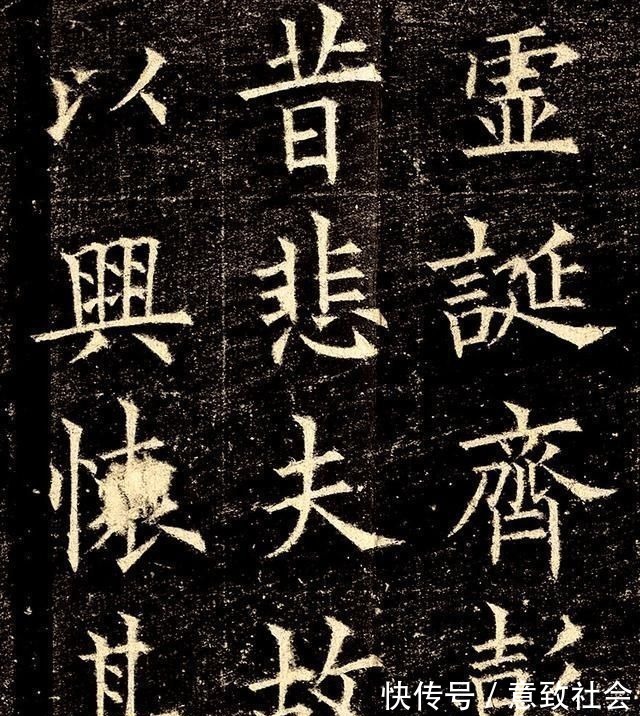 虛誕齊彭
昔悲夫故
以興懷其
快传号 / 意致社会